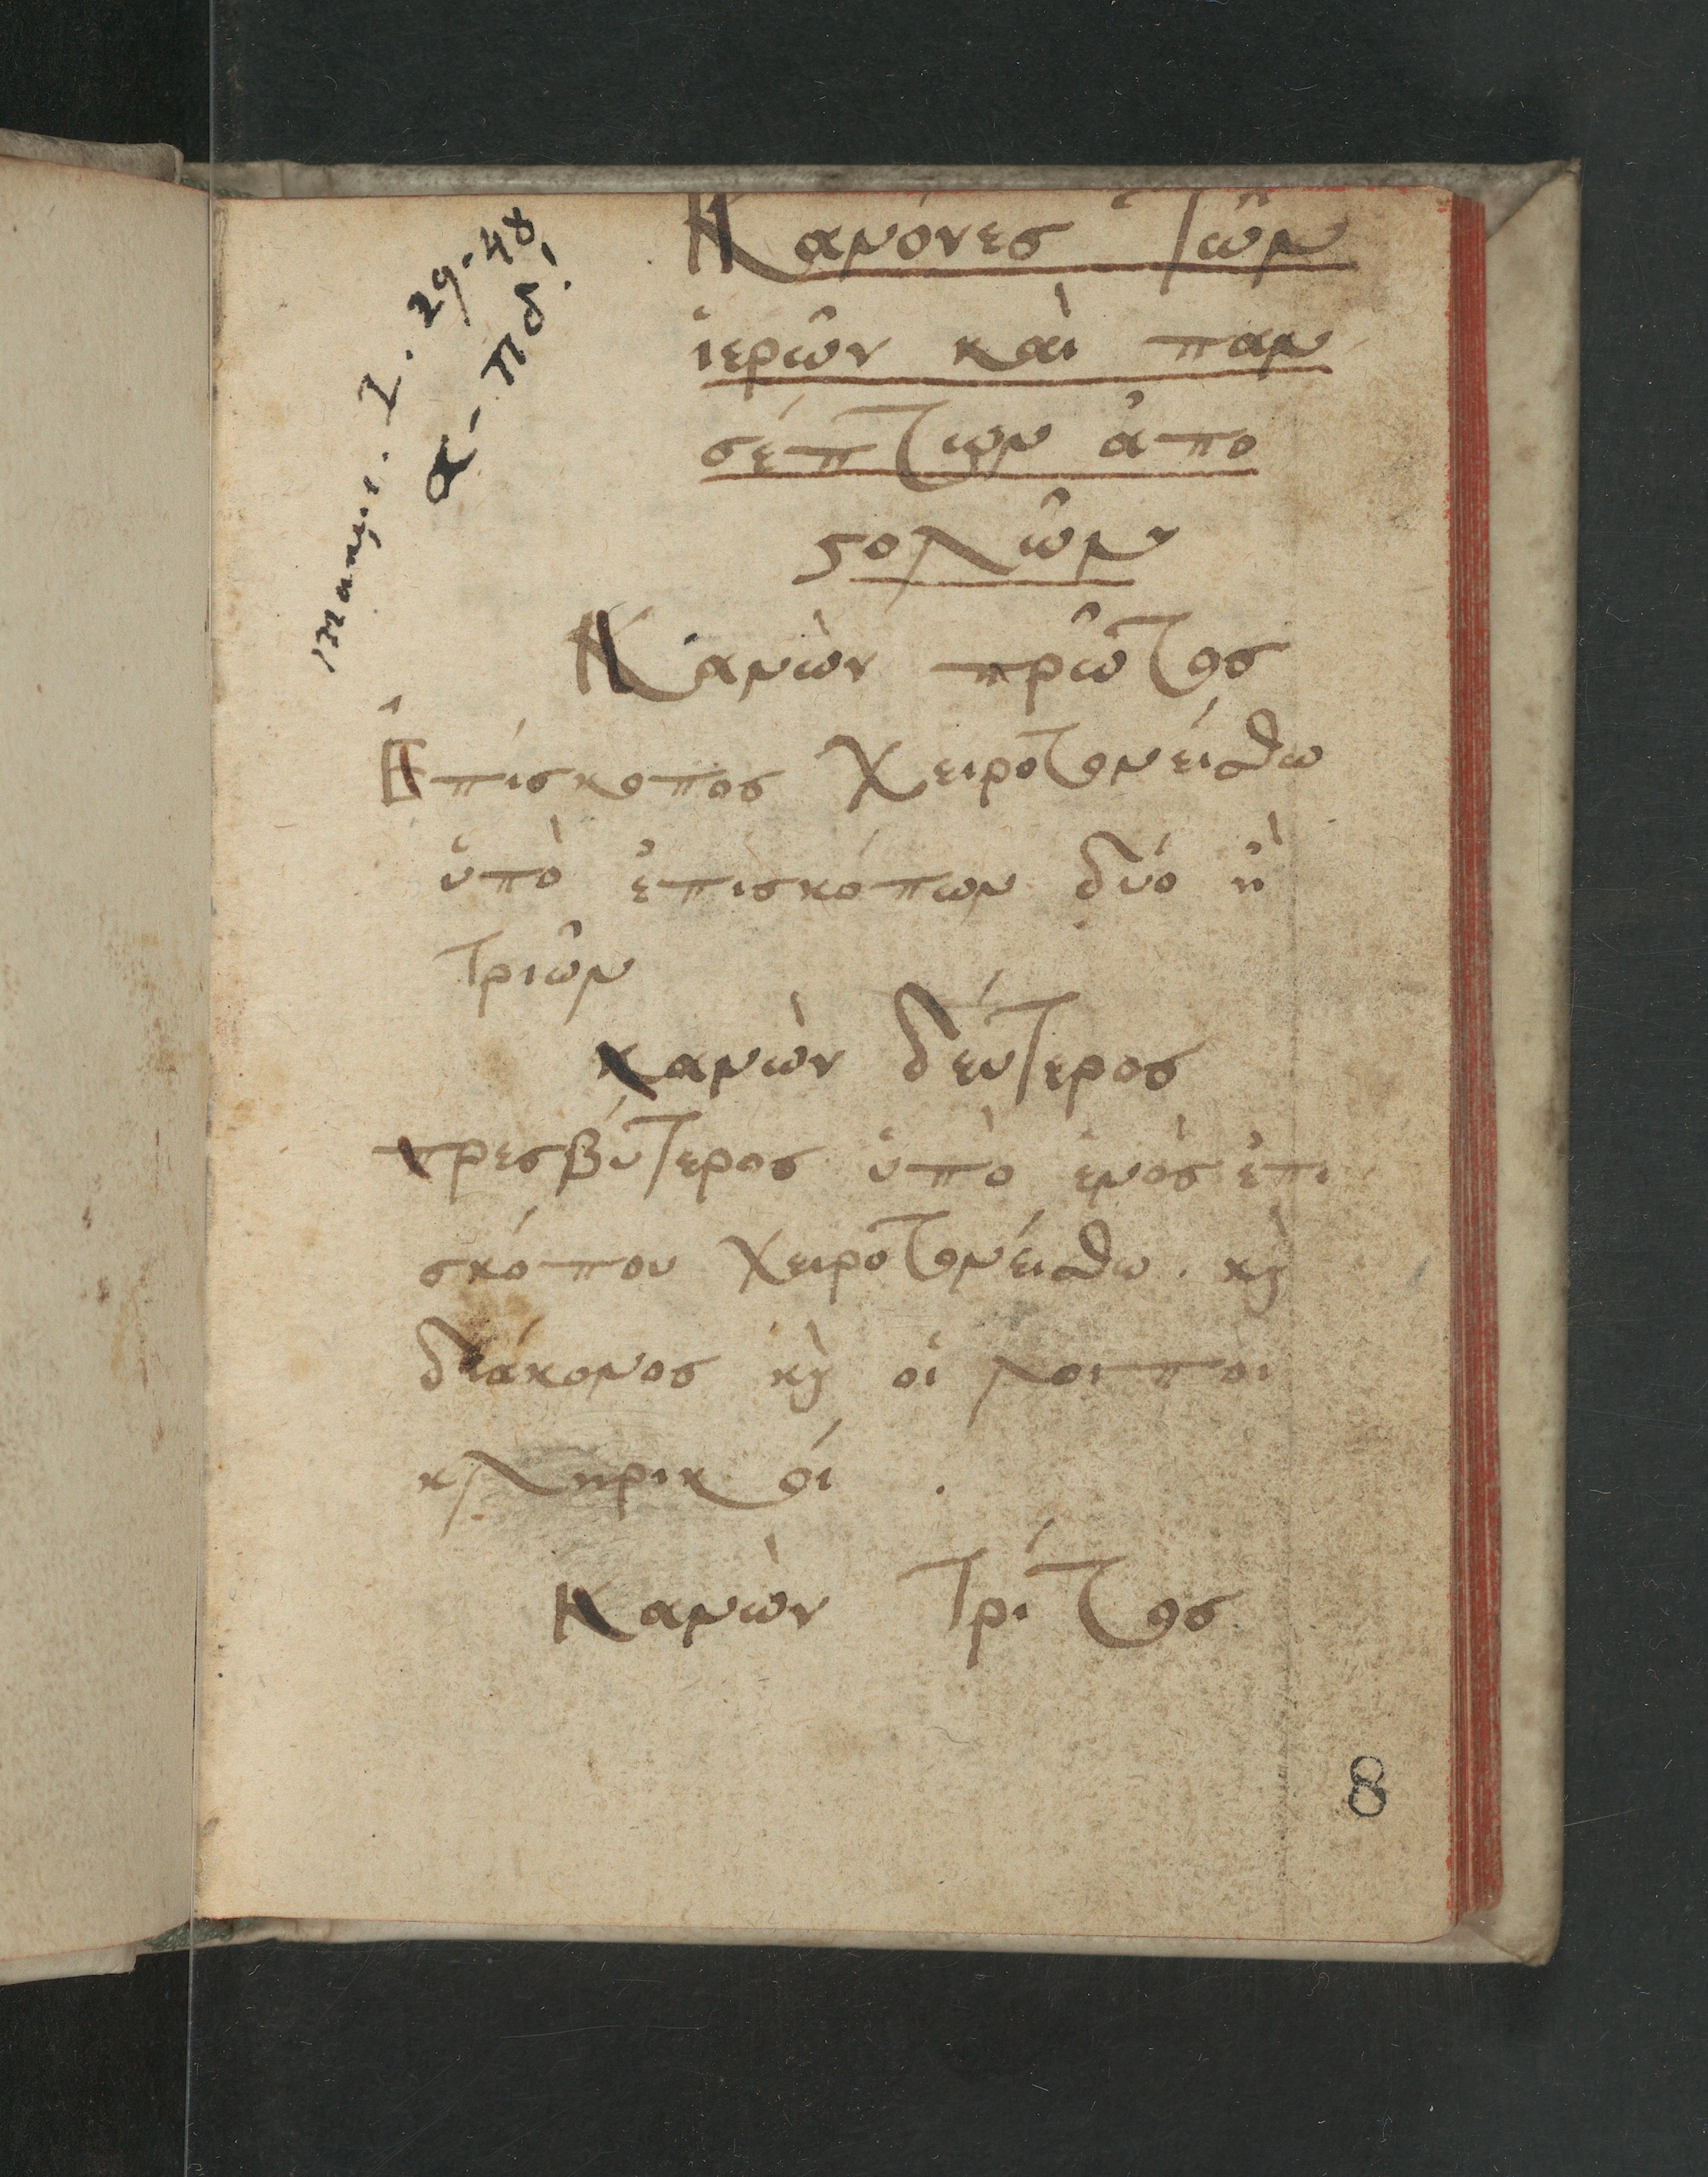 Mansi. I. 29-48
α-πδ!
Κανόνες τῶν
ἱερῶν καὶ παν
σέπτων ἀπο
ϛολῶν
Κανὼν πρῶτος
Ἐπίσκοπος χειροτονείσθω
ὑπὸ ἐπισκόπων δύο ἢ
τριῶν
κανὼν δεύτερος
πρεσβύτερος ὑπὸ ἑνὸς ἐπι
σκόπου χειροτονείσθω. κὴ
διάκονος κὴ οἱ λοιποι
κληρικοί .
κανὼν τρίτος
8